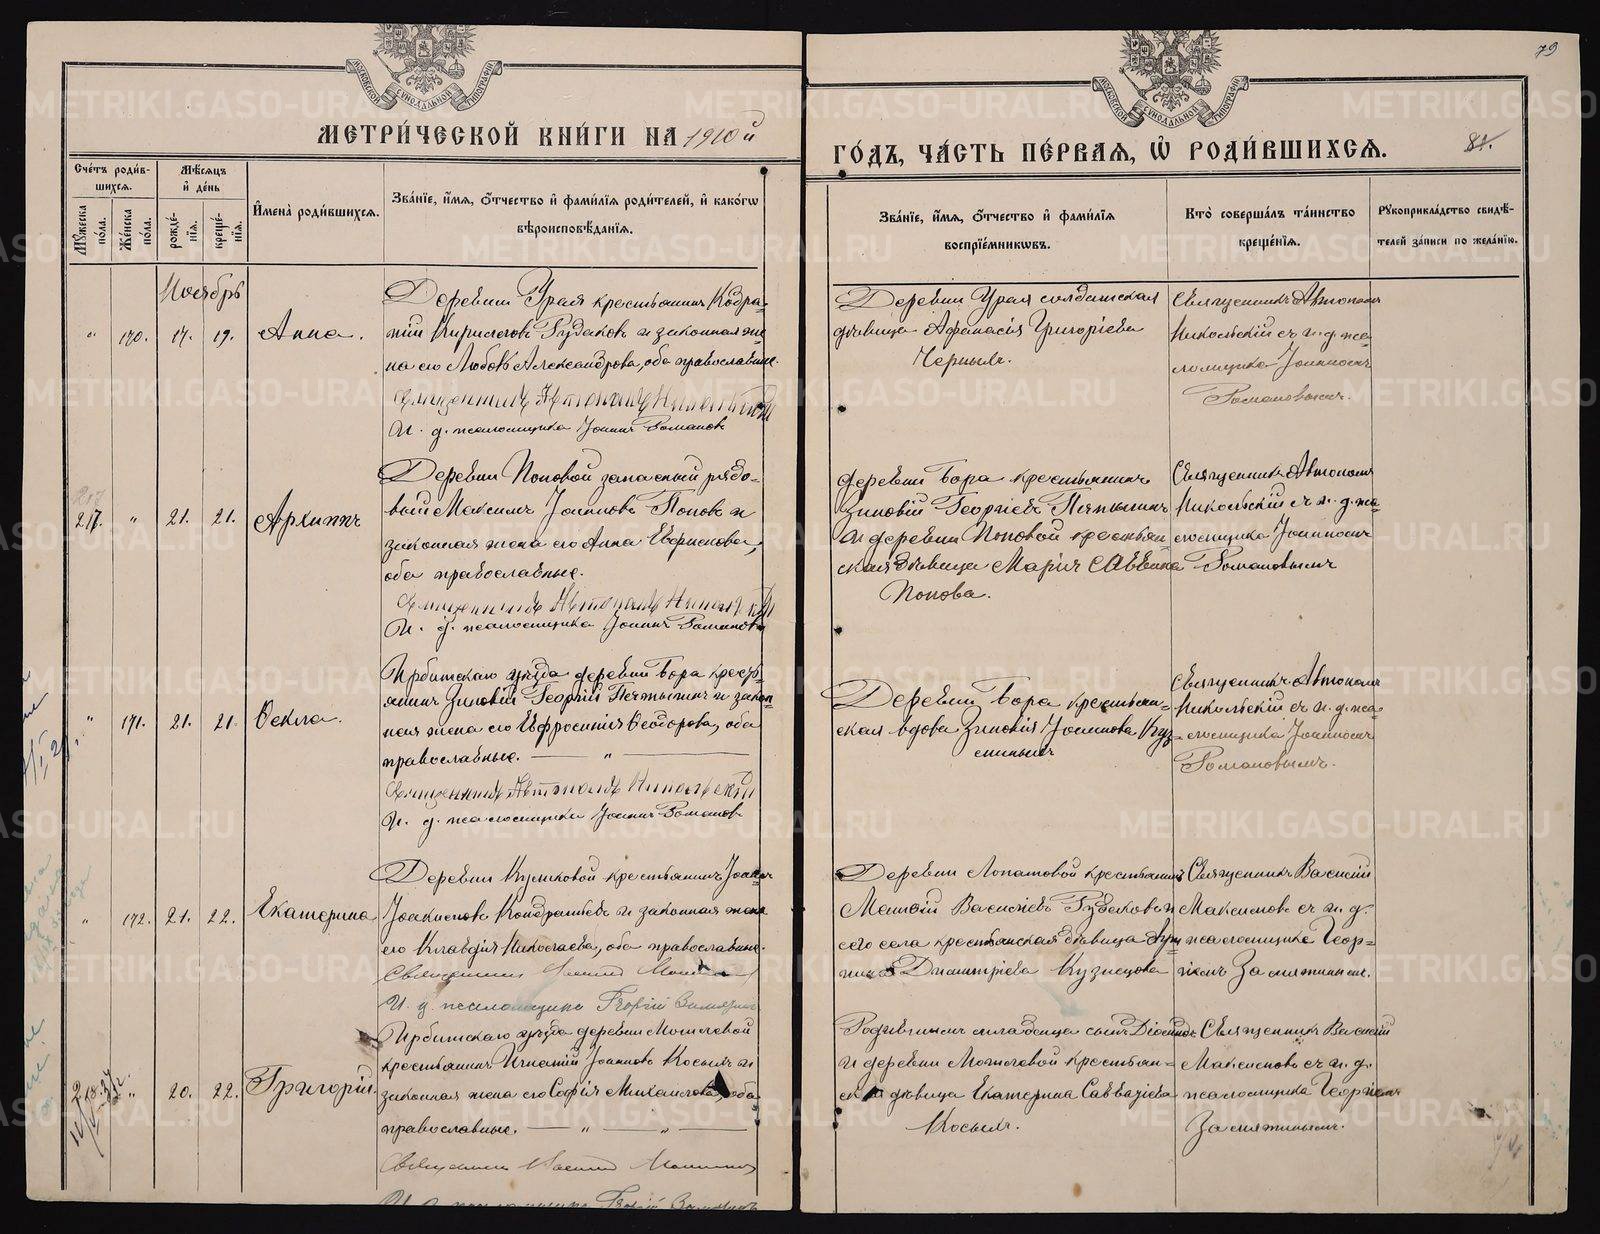 МЕТРИ́ЧЕСКОЙ КНИ́ГИ НА 1910й
ГО́ДЪ, ЧА́СТЬ ПЕ́РВАЯ, Ѡ РОДИ́ВШИХСЯ.
79
Сче́тъ роди́в-
шихся.
Му́жеска по́ла.
Же́нска по́ла.
Мѣ́сяцъ и де́нь
рожде́-нїя.
креще́-нїя.
И҆мена̀ роди́вшихся.
Зва́нїе, и҆́мя, ѻ҆́тчество и҆ фами́лїя роди́телей, и҆ како́гѡ
вѣроисповѣ́данїя.
Зва́нїе, и҆́мя, ѻ҆́тчество и҆ фами́лїя
воспрїе́мникѡвъ.
Кто̀ соверша́лъ та́инство
креще́нїя.
Рꙋкоприкла́дство свидѣ́-
телей за́писи по жела́нїю.
Ноябрь
" 170. 17. 19. Анна.
Деревни Урая крестьянинъ Кодра-
тій Кириловъ Рудаковъ и законная же-
на его Любовь Александрова, оба православные.
Священникъ Автономъ Никольскій
И. д. псаломщика Іоаннъ Романовъ
Деревни Урая солдатская
дѣвица Афанасія Григоріева
Черныхъ.
Священникъ Автономъ
Никольскій съ и. д. пса-
ломщика Іоанномъ
Романовымъ.
217. " 21. 21. Архиппъ
Деревни Поповой запасный рядо-
вой Максимъ Іоанновъ Поповъ и
законная жена его Анна
оба православные.
Священникъ Автономъ Никольскій
И. д. псаломщика Іоаннъ Романовъ
Деревни Бора крестьянинъ
Зиновій Георгіевъ
и деревни Поповой крестьян-
ская дѣвица Марія Саввина
Попова.
Священникъ Автономъ
Никольскій съ и. д. пса-
ломщика Іоанномъ
Романовымъ
" 171. 21. 21. Ѳекла.
Ирбитскаго уѣзда деревни Бора кресть-
янинъ Зиновій Георгіевъ и закон-
ная жена его Ефросинія Ѳеодорова, оба
православные. — " —
Священникъ Автономъ Никольскій
И. д. псаломщика Іоаннъ Романовъ
Деревни Бора крестьян-
ская вдова Зиновія Іоаннова Куз-
миныхъ
Священникъ Автономъ
Никольскій съ и. д. пса-
ломщика Іоанномъ
Романовымъ.
" 172. 21. 22. Екатерина
Деревни Куликовой крестьянинъ Іоаннъ
Іоакимовъ Кондратьевъ и законная жена
его Клавдія Николаева, оба православные.
Священникъ Василій Максимовъ
И. д. псаломщика Георгій Замятинъ
Деревни Лопатовой крестьянинъ
Василіевъ Губаковъ и
сего села крестьянская дѣвица
Димитріева Кузнецова
Священникъ Василій
Максимовъ съ и. д.
псаломщика Геор-
гіемъ Замятинымъ.
218. " 20. 22. Григорій.
Ирбитскаго уѣзда деревни Мотоговой
крестьянинъ Игнатій Іоанновъ Косыхъ и
законная жена его Софія Михаилова, оба
православные. — " — " —
Священникъ Василій Максимовъ
И. д. псаломщика Георгій Замятинъ
младенца сынъ
и деревни крестьян-
ская дѣвица Екатерина Савватіева
Косыхъ.
Священникъ Василій
Максимовъ съ и. д.
псаломщика Георгіемъ
Замятинымъ.
METRIKI.GASO-URAL.RU